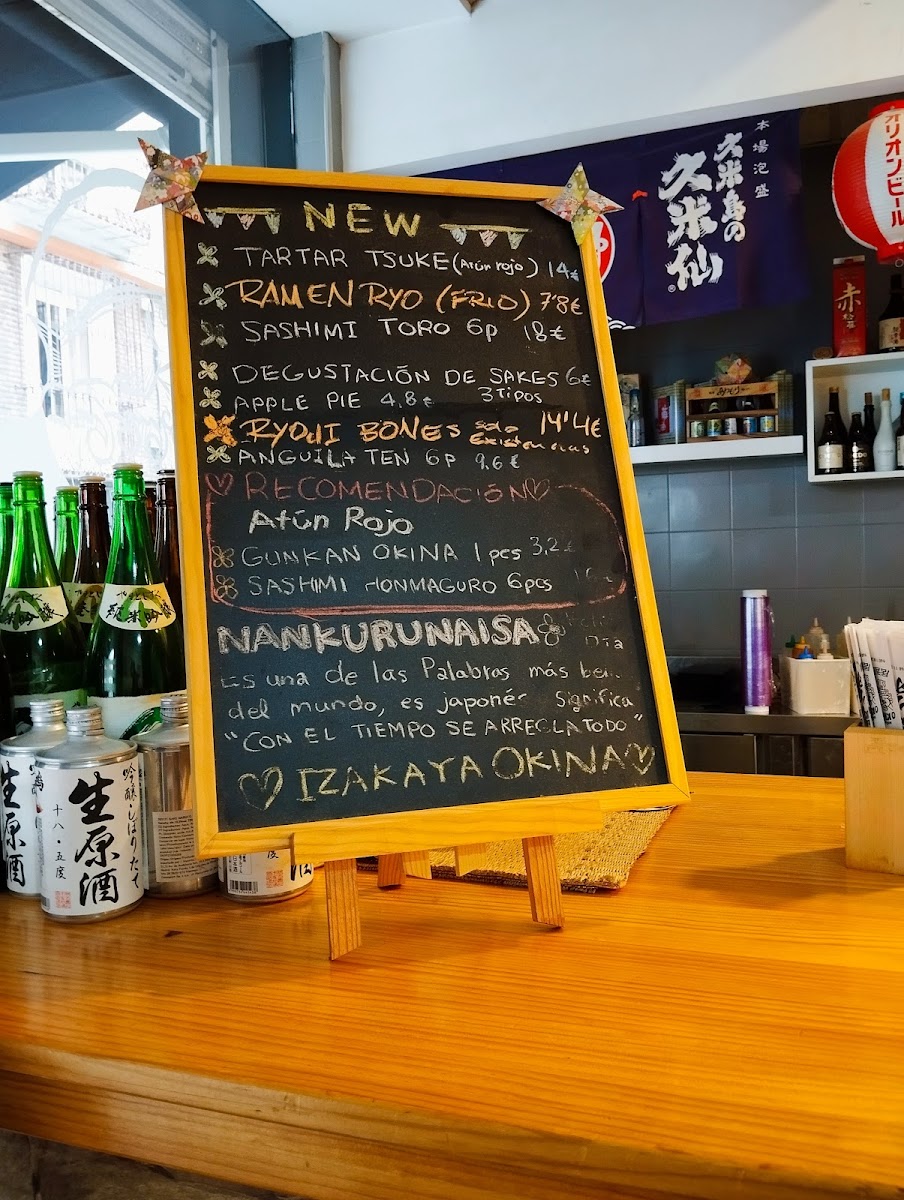 NEW
TARTAR TSUKE (Atún rojo) 14€
RAMEN RYO (FRIO) 7'8€
SASHIMI TORO 6p 18€
DEGUSTACIÓN DE SAKES 6€
3 Tipos
APPLE PIE 4,8€
RYOJI BONES solo 14'4€
Existencias
ANGUILA TEN 6p 9,6€
RECOMENDACIÓN
Atún Rojo
GUNKAN OKINA 1 pcs 3,2€
SASHIMI HONMAGURO 6pcs
NANKURUNAISA
Es una de las Palabras más
del mundo, es japonés Significa
"CON EL TIEMPO SE ARREGLA TODO"
IZAKAYA OKINA
本場泡盛
久米島の
久米仙
オリオンビール
赤
吟醸・しぼりたて
生原酒
十八・五度
生原酒